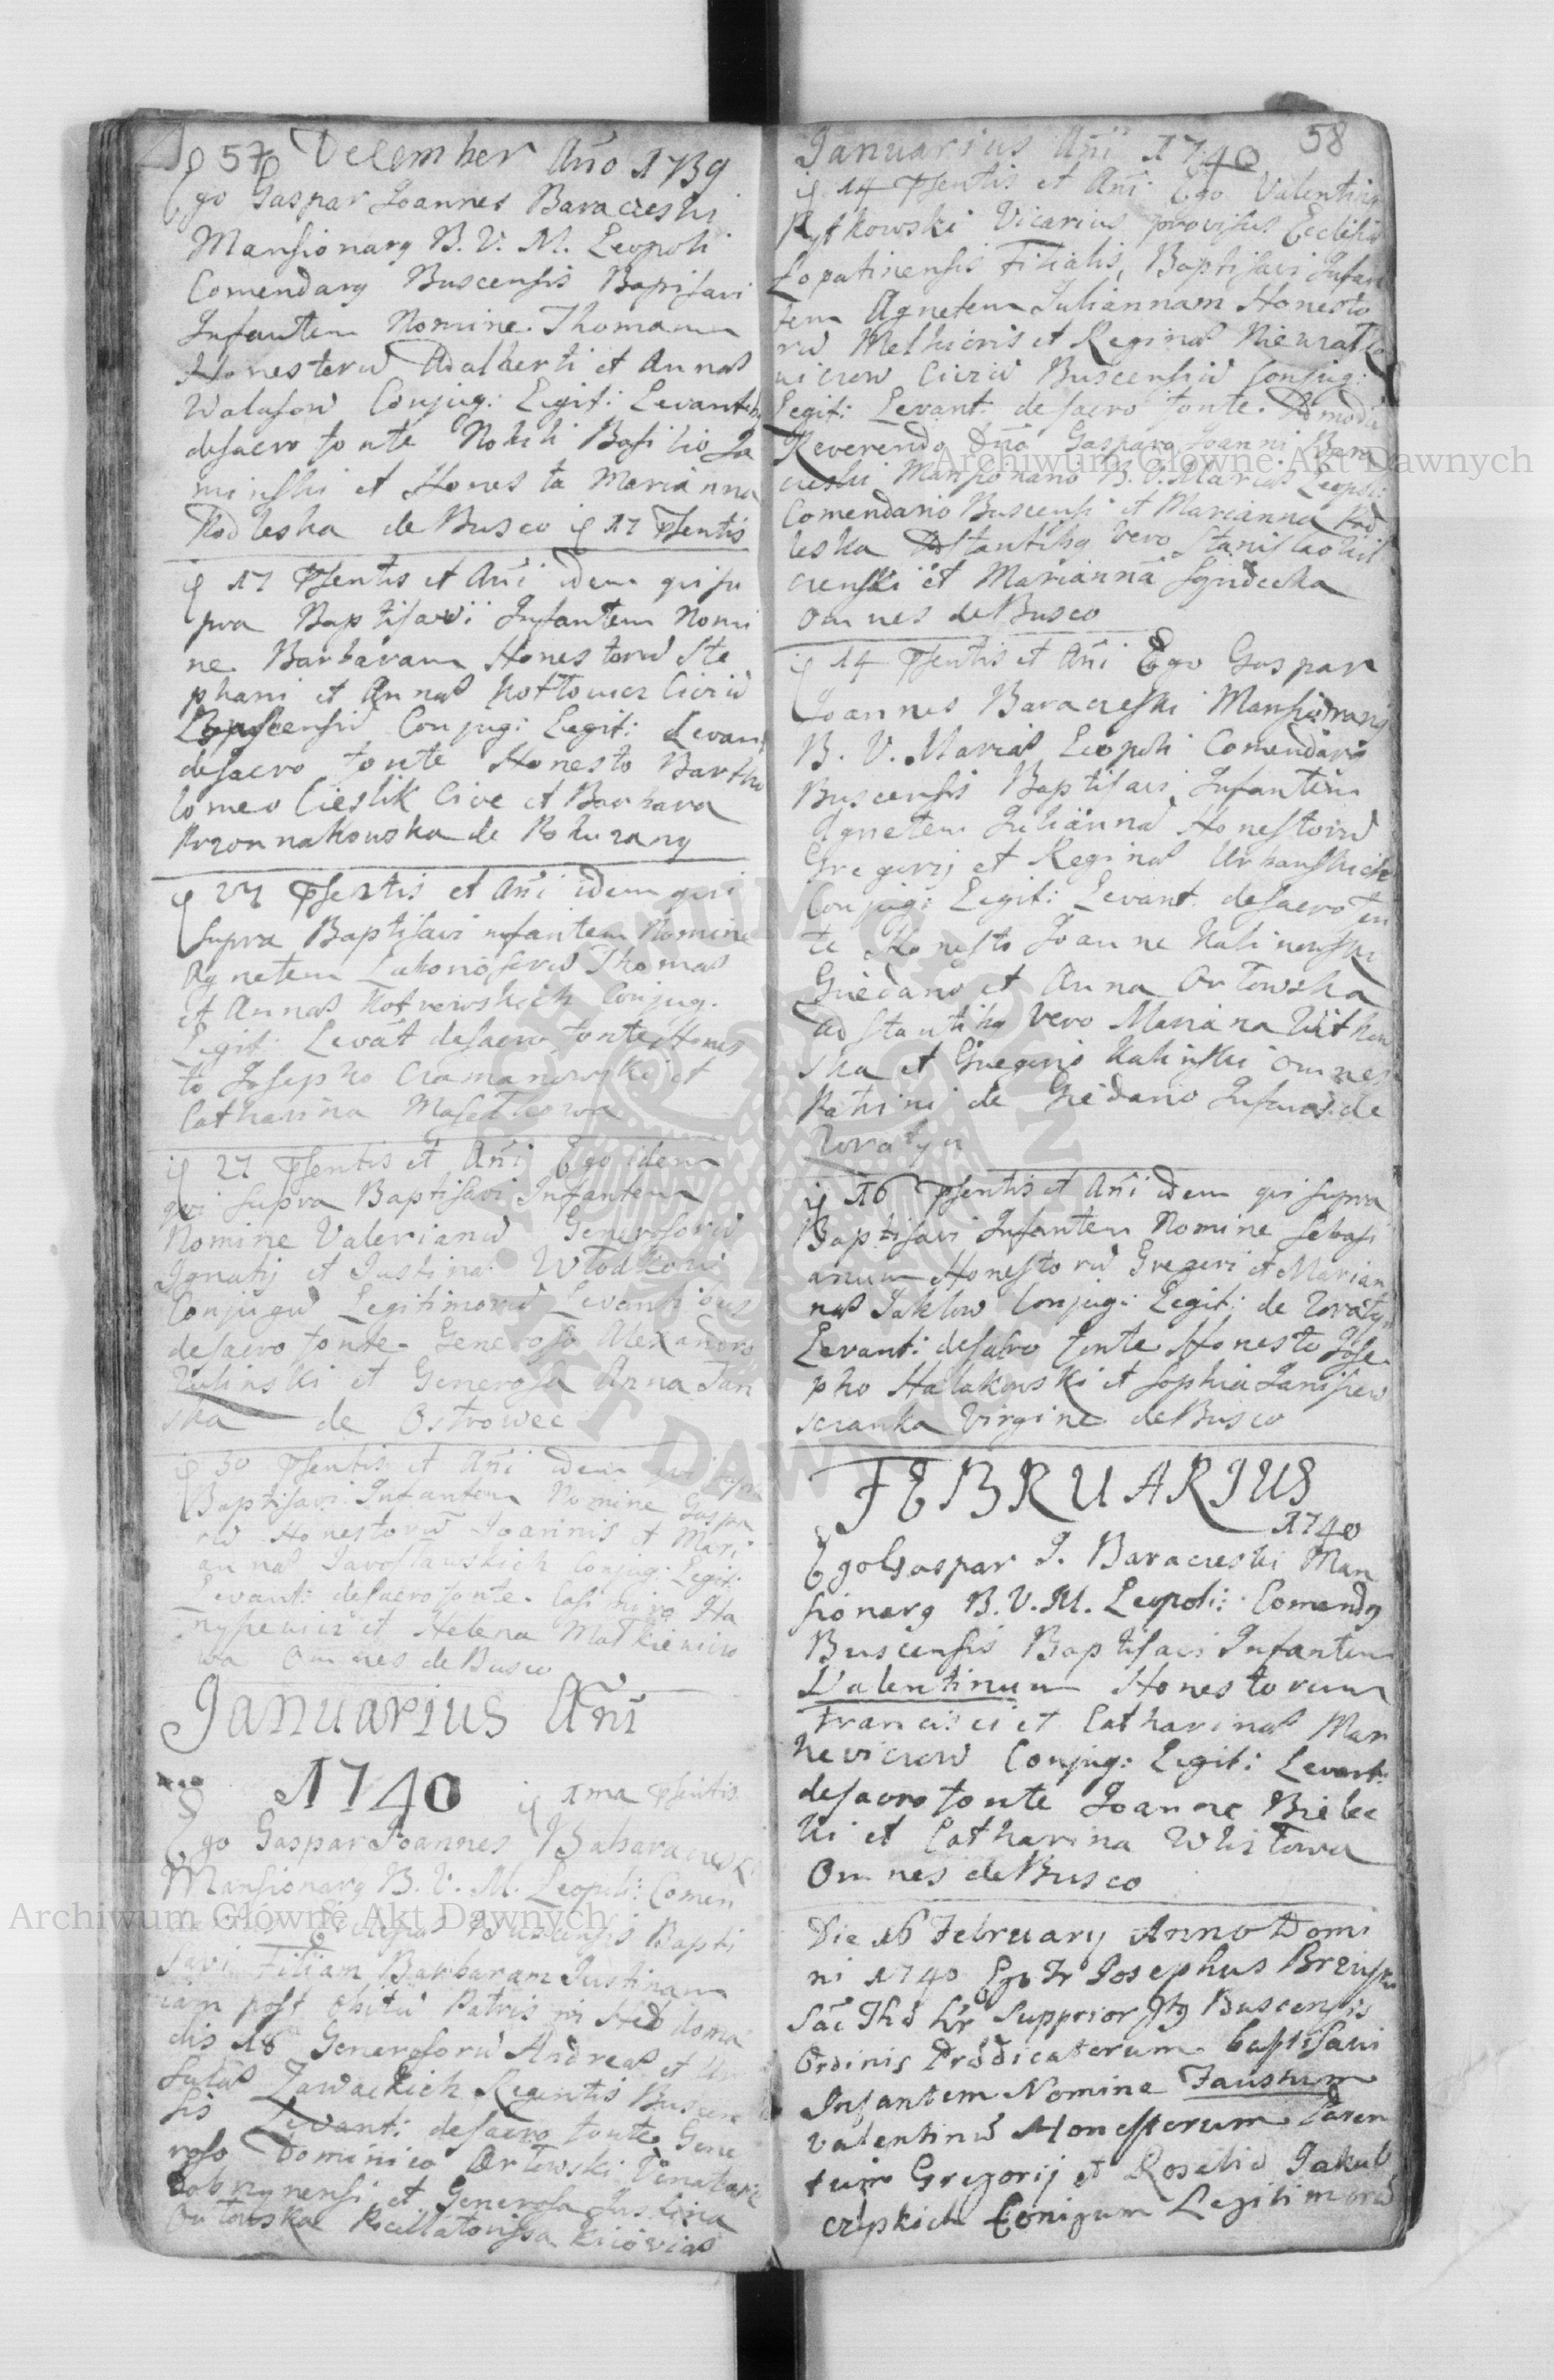 57 December Año 1739
Ego Gaspar Joannes Baraczeski
Mansionarg B. V. M. Leopoli
Comendarg Buscensis Baptisavi
Infantem Nomine Thomam
Honestorū Adalberti et Annæ
Walusow Conjug: Legit: Levantibg
desacro fonte Nobili Basilio Ja
minski et Honesta Marianna
Podleska de Busco ię 17 Psentis
ię 17 Psentis et Añi idem qui su
pra Baptisavi Infantem Nomi
ne Barbaram Honestorū Ste
phani et Annæ Kottowicz Civiū
Buscensiū Conjug: Legit: Levant
desacro fonte Honesto Bartho
lomeo Cieslik Cive et Barbara
de
ię 27 Psentis et Añi idem qui
supra Baptisavi infantem Nomine
Agnetem Laboriosorū Thomæ
et Annæ Kotrowskich Conjug.
Legit: Levāt desacro fonte Hones
to Josepho et
Catharina
ię 27 Psentis et Añi Ego idem
qui supra Baptisavi Infantem
Nomine Valerianū Generosorū
Ignatij et Justinæ Włodkow
Conjugū Legitimorū Levantibus
desacro fonte Generoso Alexandro
Zulinski et Generosa Anna Tan
ska de Ostrowec
ię 30 Psentis et Añi idem qui supra
Baptisavi Infantem Nomine Gaspa
rū Honestorū Joannis et Mari
annæ Jarosławskich Conjug: Legit:
Levant: desacro fonte Casimiro Ha
nysewicz et Helena Matkiewicz
wa Omnes de Busco
Januarius Añi
1740 ię 1ma Psentis
Ego Gaspar Joannes
Mansionarg B. V. M. Leopoli: Comen
Buscensis Bapti
savi Filiam Barbaram Justinam
iam post obitū Patris in Hebdoma
dis 18 Generosorū Andreæ et Ur
sulæ Zawackich Regentis Buscen
sis Levanti: desacro fonte Gene
roso Dominico Orłowski Venatore
Dobrzynensi et Generosa Justina
Orłowska Pocillatorissa Kiioviæ
Januarius Añi 1740 58
ię 14 Psentis et Añi Ego Valentinus
Rytkowski Vicarius provisus Ecclesiæ
Lopatinensis Filialis, Baptisavi Infan
tem Agnetem Juliannam Honesto
rū Melhioris et Reginæ Niewiatko
wiczow Civiū Buscensiū Conjug:
Legit: Levant: desacro fonte Admodū
Reverendo Dño Gasparo Joanni Bara
czeski Mansionario B. V. Mariæ Leopoli:
Comendario Buscensi et Marianna Pod
leska Astantibg vero Stanislao Wil
czenski et Marianna
omnes de Busco
ię 14 Psentis et Añi Ego Gaspar
Joannes Baraczeski Mansionarig
B. V. Mariæ Leopoli Comendarig
Buscensis Baptisavi Infantem
Agnetem Juliannā Honestorū
Gregorij et Reginæ Urbanskich
Conjug: Legit: Levant. desacro fon
te Honesto Joanne Kalinowski
et Anna Orłowska
adstantibg vero Mariana Witkow
ska et Gregorio Kalinski omnes
Patrini de Infans de
Zoratyn
ię 16 Psentis et Añi idem qui supra
Baptisavi Infantem Nomine Sebasti
anum Honestorū Gregori et Marian
næ Jaklow Conjug: Legit: de Zoratyn
Levant: desacro fonte Honesto Jose
pho Halakowski et Sophia Janisiew
sczanka Virgine de Busco
FEBRUARIUS
1740
Ego Gaspar J. Baraczeski Man
sionarg B. V. M. Leopoli: Comendg
Buscensis Baptisavi Infantem
Valentinum Honestorum
Francisci et Catharinæ Mar
kewiczow Conjug: Legit: Levant:
desacro fonte Joanne Bielec
ki et Catharina
Omnes de Busco
Die 16 February Anno Domi
ni 1740 Ego Fr Josephus
Supprior Buscensis
Ordinis Prædicatorum baptisavi
Infantem Nomine Faustum
Valentinū Honestorum Paren
tum Gregorij et Rosaliæ Jakub
czyskich Conigum Legitimorū
Archiwum Główne Akt Dawnych
Archiwum Główne Akt Dawnych
ARCHIWUM GŁÓWNE AKT DAWNYCH